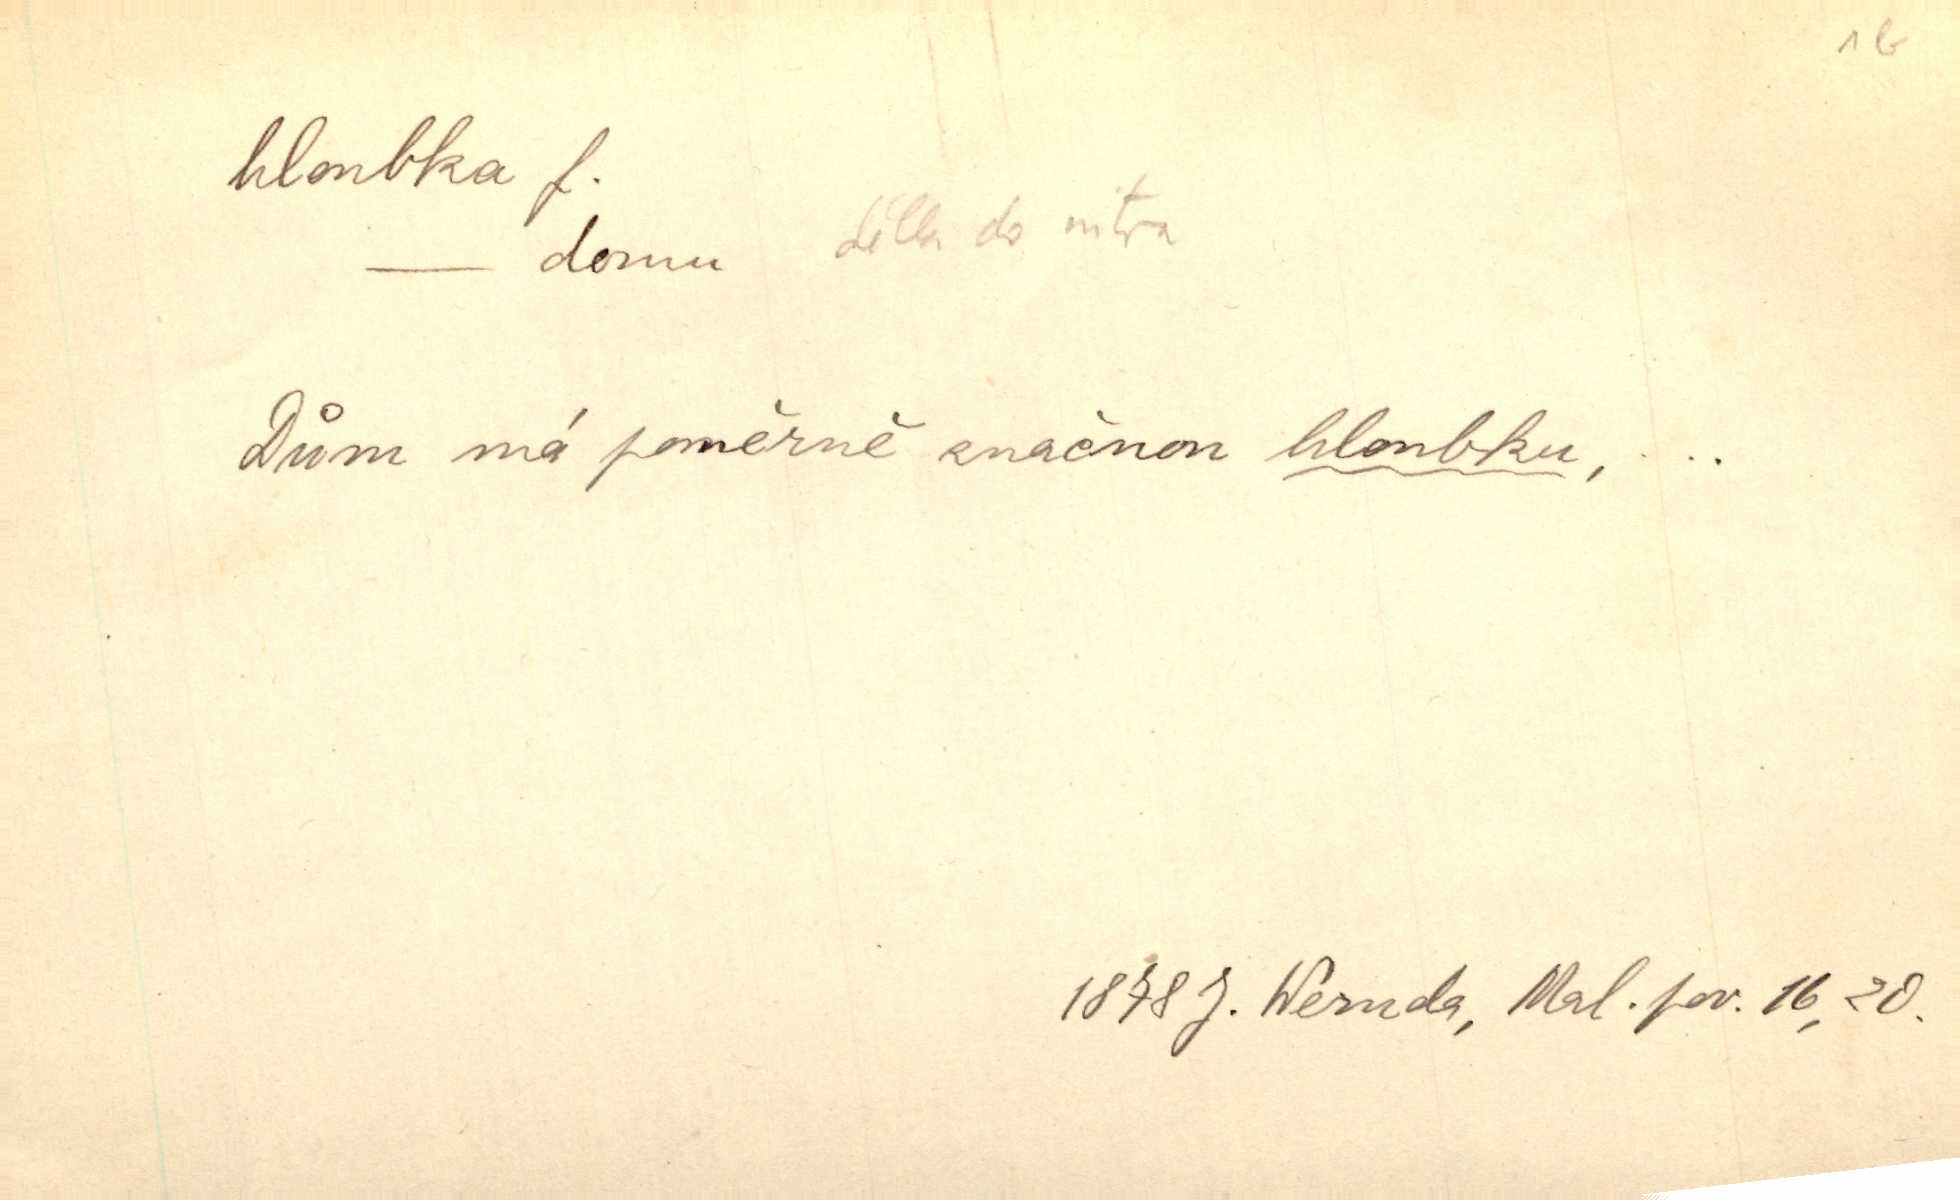 1 b
hloubka f.
— domu délka do nitra
Dům má poměrně značnou hloubku, ...
1878 J. Neruda, Mal. pov. 16, 20.